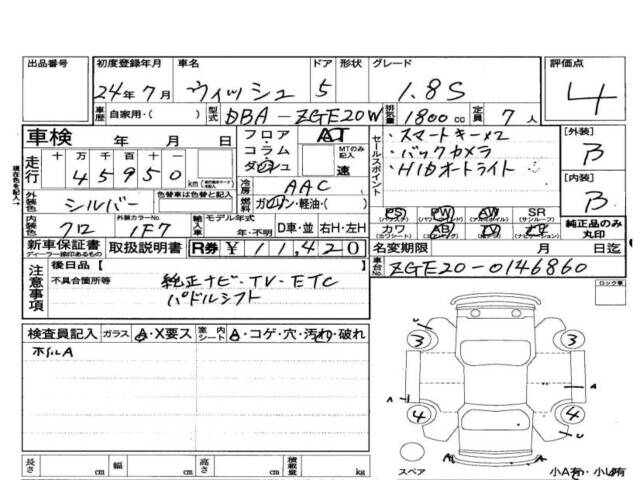 出品番号 初度登録年月 車名 ドア 形状 グレード 評価点
24年7月 ウィッシュ 5 1.8S 4
車歴 自家用・( ) 型式 DBA-ZGE20W 排気量 1800cc 定員 7人
車検 年 月 日 フロア AT セールスポイント ・スマートキー×2 [外装]
コラム MTのみ記入 ・バックカメラ B
走行 十万千百十一 45950km ダッシュ 速 ・HIDオートライト
外装色 シルバー 色替車は色替と記入 冷房 AAC [内装]
燃料 ガソリン・軽油・( ) B
内装色 クロ 外装カラーNo. 1F7 輸入車 モデル年式 年・不明 D車・並 右H・左H PS PW AW SR
カワ AB TV ナビ 純正品のみ丸印
新車保証書 ディーラー捺印あるもの 取扱説明書 R券 ¥11,420 名変期限 月 日迄
注意事項 後日品[ ] 車台No. ZGE20-0146860
不具合箇所等 純正ナビ・TV・ETC
パドルシフト
ロック車
検査員記入 ガラス A・X要ス 室内シート A・コゲ・穴・汚れ・破れ
ホイルA
U
3 3
A A
4 4
U
A A
長さ cm 幅 cm 高さ cm 積載量 kg スペア 小A有・小U有
現在色を記入→